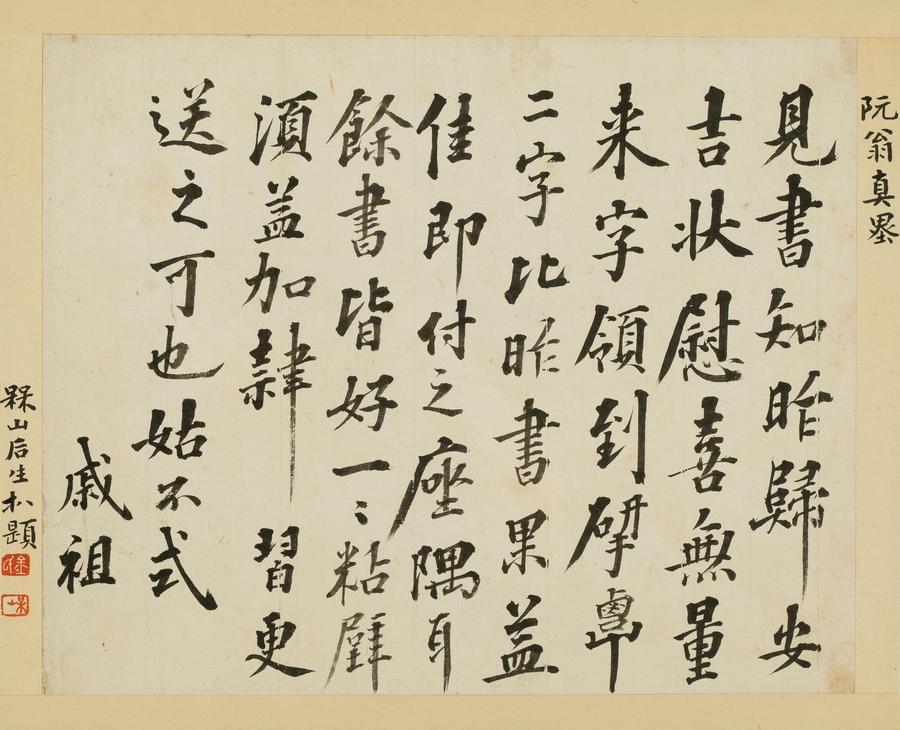 阮翁真墨
見書知昨歸安
吉状慰喜無量
来字領到硏
二字比昨書果益
佳即付之座隅耳
餘書皆好一〻粘壁
須益加隷習更
送之可也姑不式
戚祖
山后生朩題